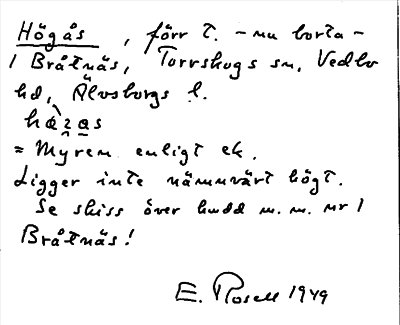 Högås, förr t. - nu borta -
1 Bråtnäs, Torrskogs sn, Vedbo
hd, Älvsborgs l.
= Myren enligt ek.
Ligger inte nämnvärt högt.
Se skiss över hudd m.m. nr 1
Bråtnäs!
E. Rosell 1949